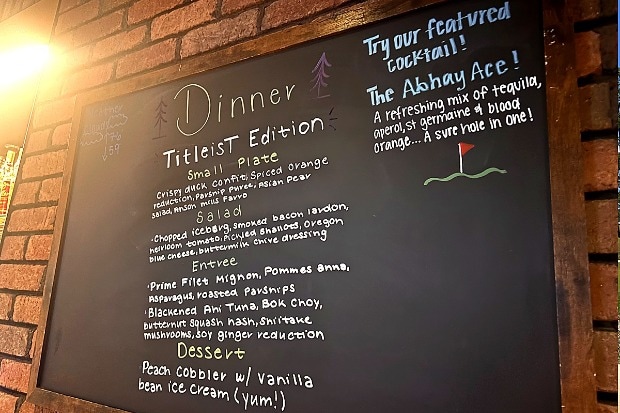 Weather
↑76
↓59
Dinner
Titleist Edition
Small Plate
Crispy duck confit, Spiced orange
reduction, Parsnip Puree, Asian Pear
Salad, Anson mills Farro
Salad
·Chopped iceberg, smoked bacon lardon,
heirloom tomato, Pickled Shallots, Oregon
blue cheese, buttermilk chive dressing
Entree
·Prime Filet Mignon, Pommes anna,
Asparagus, roasted Parsnips
·Blackened Ahi Tuna, Bok Choy,
butternut squash hash, Shiitake
mushrooms, soy ginger reduction
Dessert
Peach Cobbler w/ Vanilla
bean ice cream (yum!)
Try our featured
cocktail!
The Abhay Ace!
A refreshing mix of tequila,
aperol, st germaine & blood
orange... A sure hole in one!